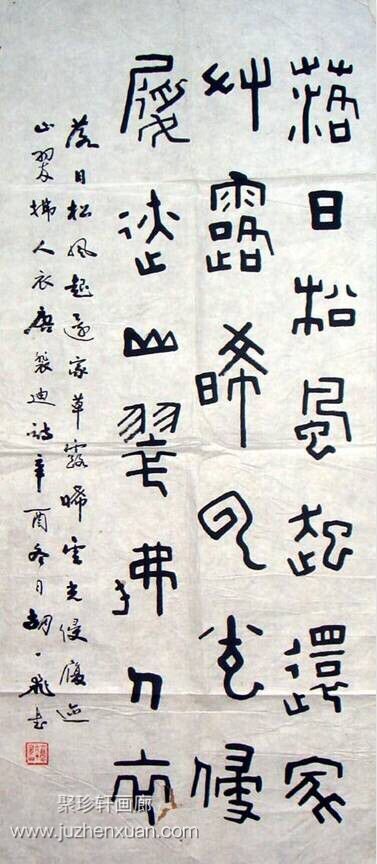 落日松風起還家
艸露晞云光侵
履迹山翠拂人衣
落日松風起還家草露晞雲光侵履迹
山翠拂人衣唐裴迪詩辛酉冬日胡一飛
聚珍轩画廊
www.juzhenxuan.com